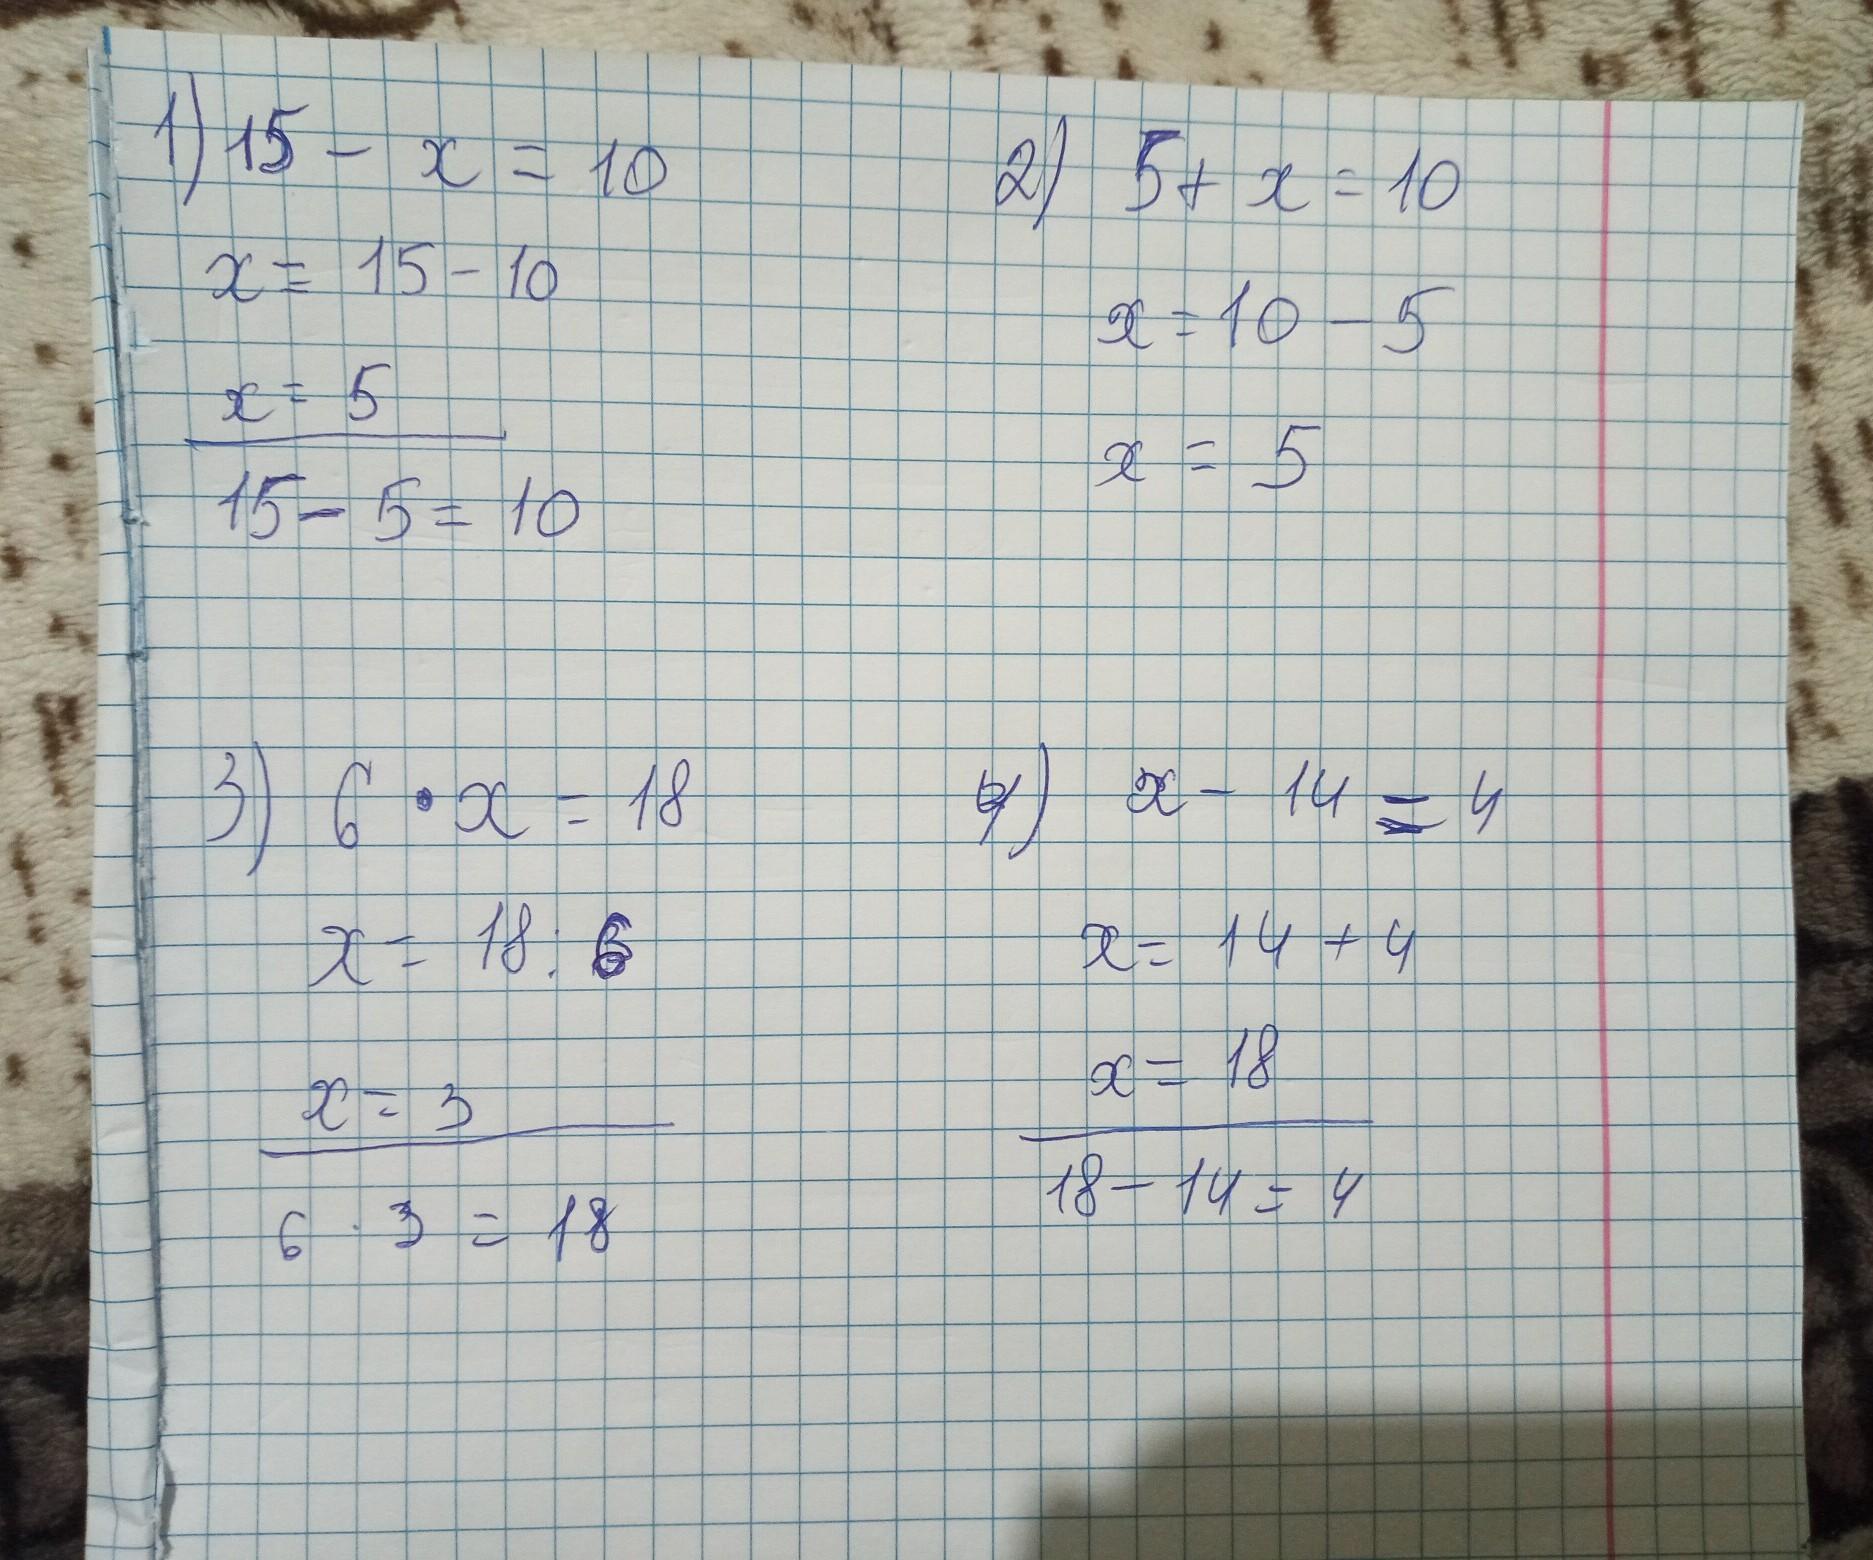 1) 15 - x = 10
x = 15 - 10
x = 5
15 - 5 = 10
2) 5 + x = 10
x = 10 - 5
x = 5
3) 6 · x = 18
x = 18 : 6
x = 3
6 · 3 = 18
4) x - 14 = 4
x = 14 + 4
x = 18
18 - 14 = 4